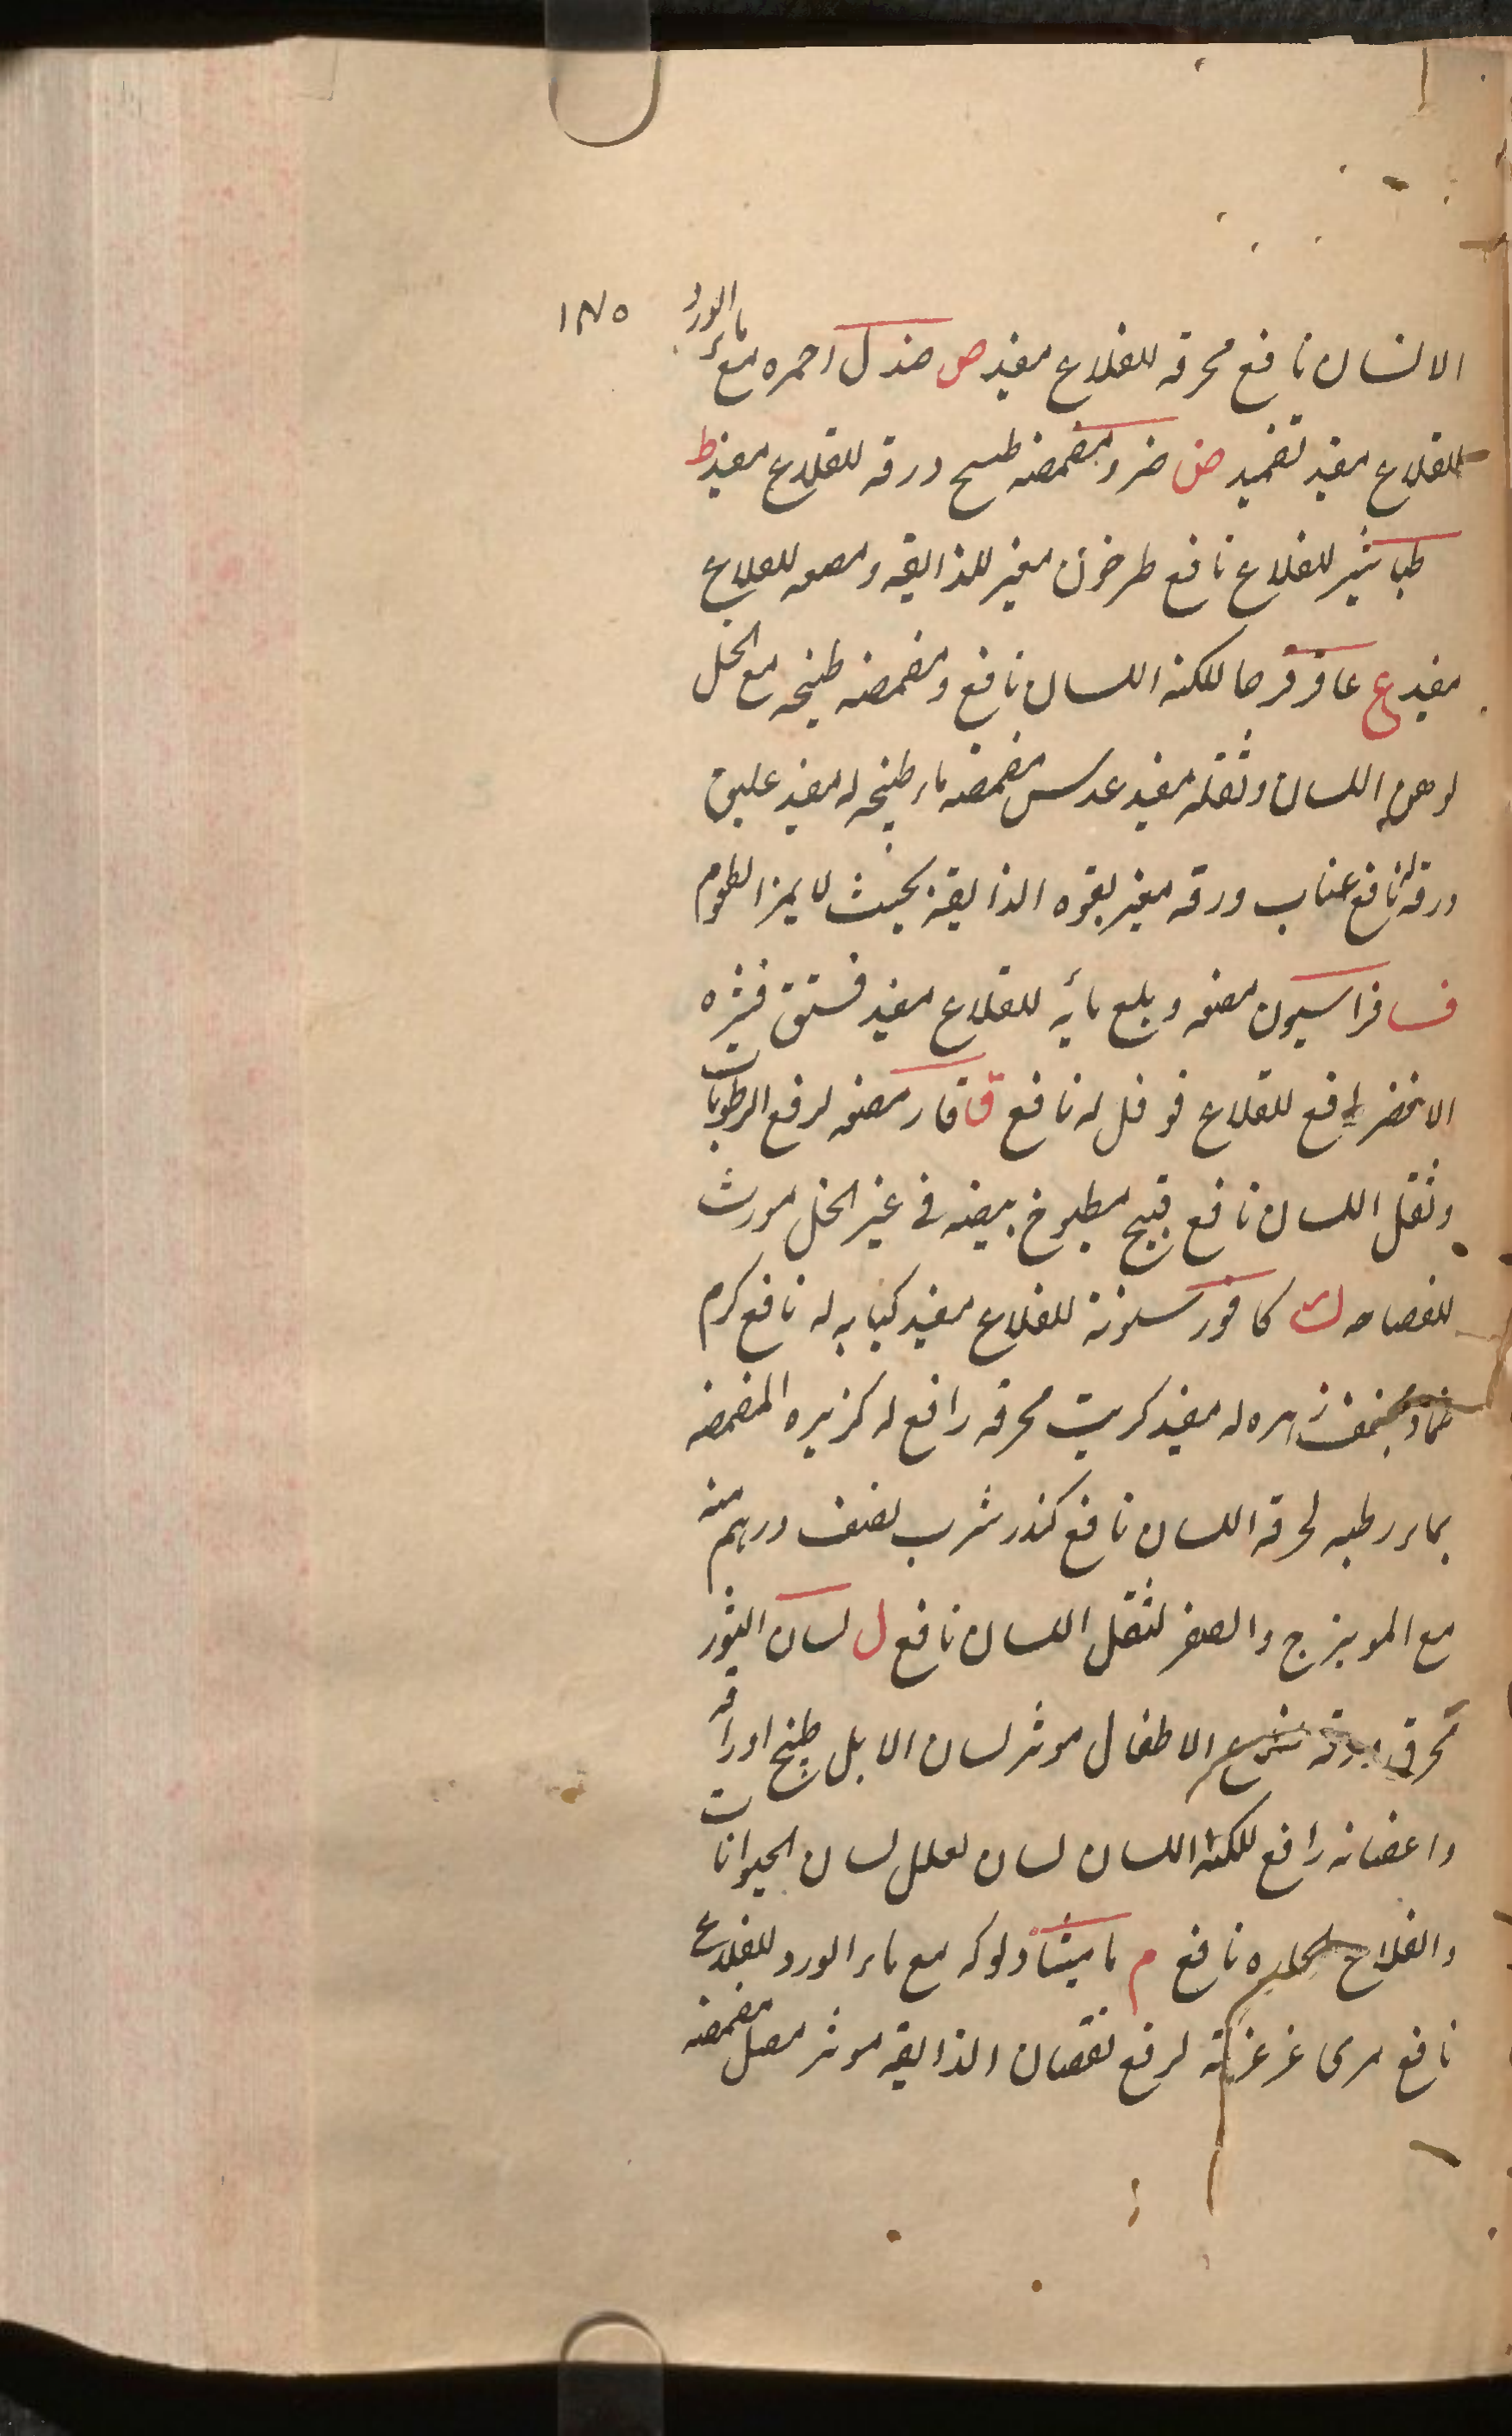 ١٣٥
الانسان نافع محرقه للقلاع مفيد ص صندل احمره مع ماء الورد
للقلاع مفيد تضميد ض ضرو مضمضه طبيح ورقه للقلاع مفيد ط
طباشير للقلاع نافع طرخون مغير للذايقه ومضغه للقلاع
مفيد ع عاقرقرحا للكنه اللسان نافع ومضمضه طبيخه مع الخل
اللسان وثقله مفيد عدس مضمضه ماء طبيخه له مفيد عليق
ورقه له نافع عناب ورقه مغير لقوه الذايقه بحيث لا يميز الطعوم
ف فراسيون مضغه وبلع مائه للقلاع مفيد فستق قشره
الاخضر للقلاع فوفل له نافع ق قار مضغه لرفع الرطوبات
وثقل اللسان نافع قبج مطبوخ بيضه فى غير الخل مورث
للفصاحه ك كافور سنونه للقلاع مفيد كبابه له نافع كرم
زهره له مفيد كبريت محرقه رافع له كزبره المضمضه
بماء رطبه لحرقه اللسان نافع كندر شرب نصف درهم منه
مع المويزج والصعتر لثقل اللسان نافع ل لسان الثور
محرق ورقه الاطفال موثر لسان الابل طبيخ اوراقه
واغصانه رافع للكنه اللسان لسان لعلل لسان الحيوانات
والقلاع نافع م ماميثا دلوكه مع ماء الورد للقلاع
نافع مرى غرغرته لرفع نقصان الذايقه موثر مصل مضمضه